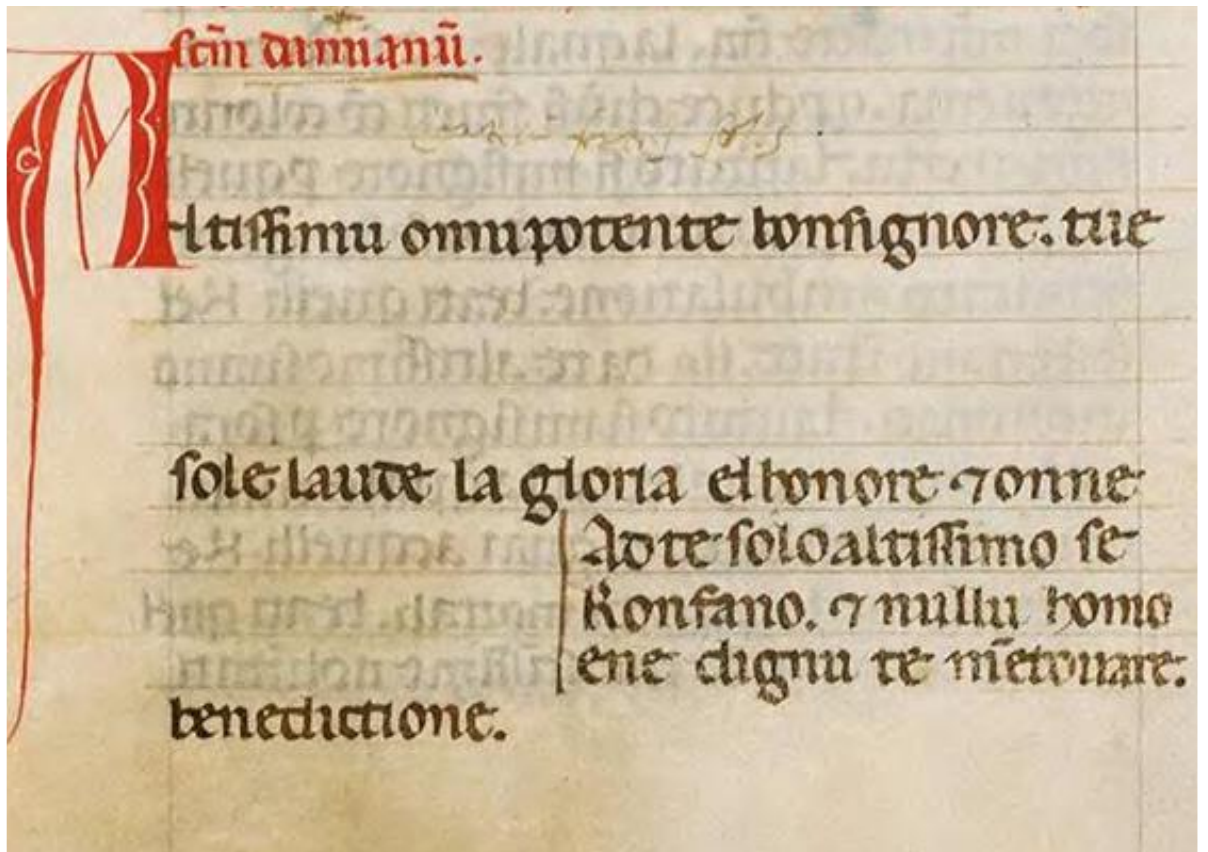 scm̄ damianū.
Altissimu onnipotente bonsignore. tue
sole laude la gloria elhonore ⁊ onne
Adte solo altissimo se
Konfano. ⁊ nullu homo
ene dignu te m̄etouare.
benedictione.